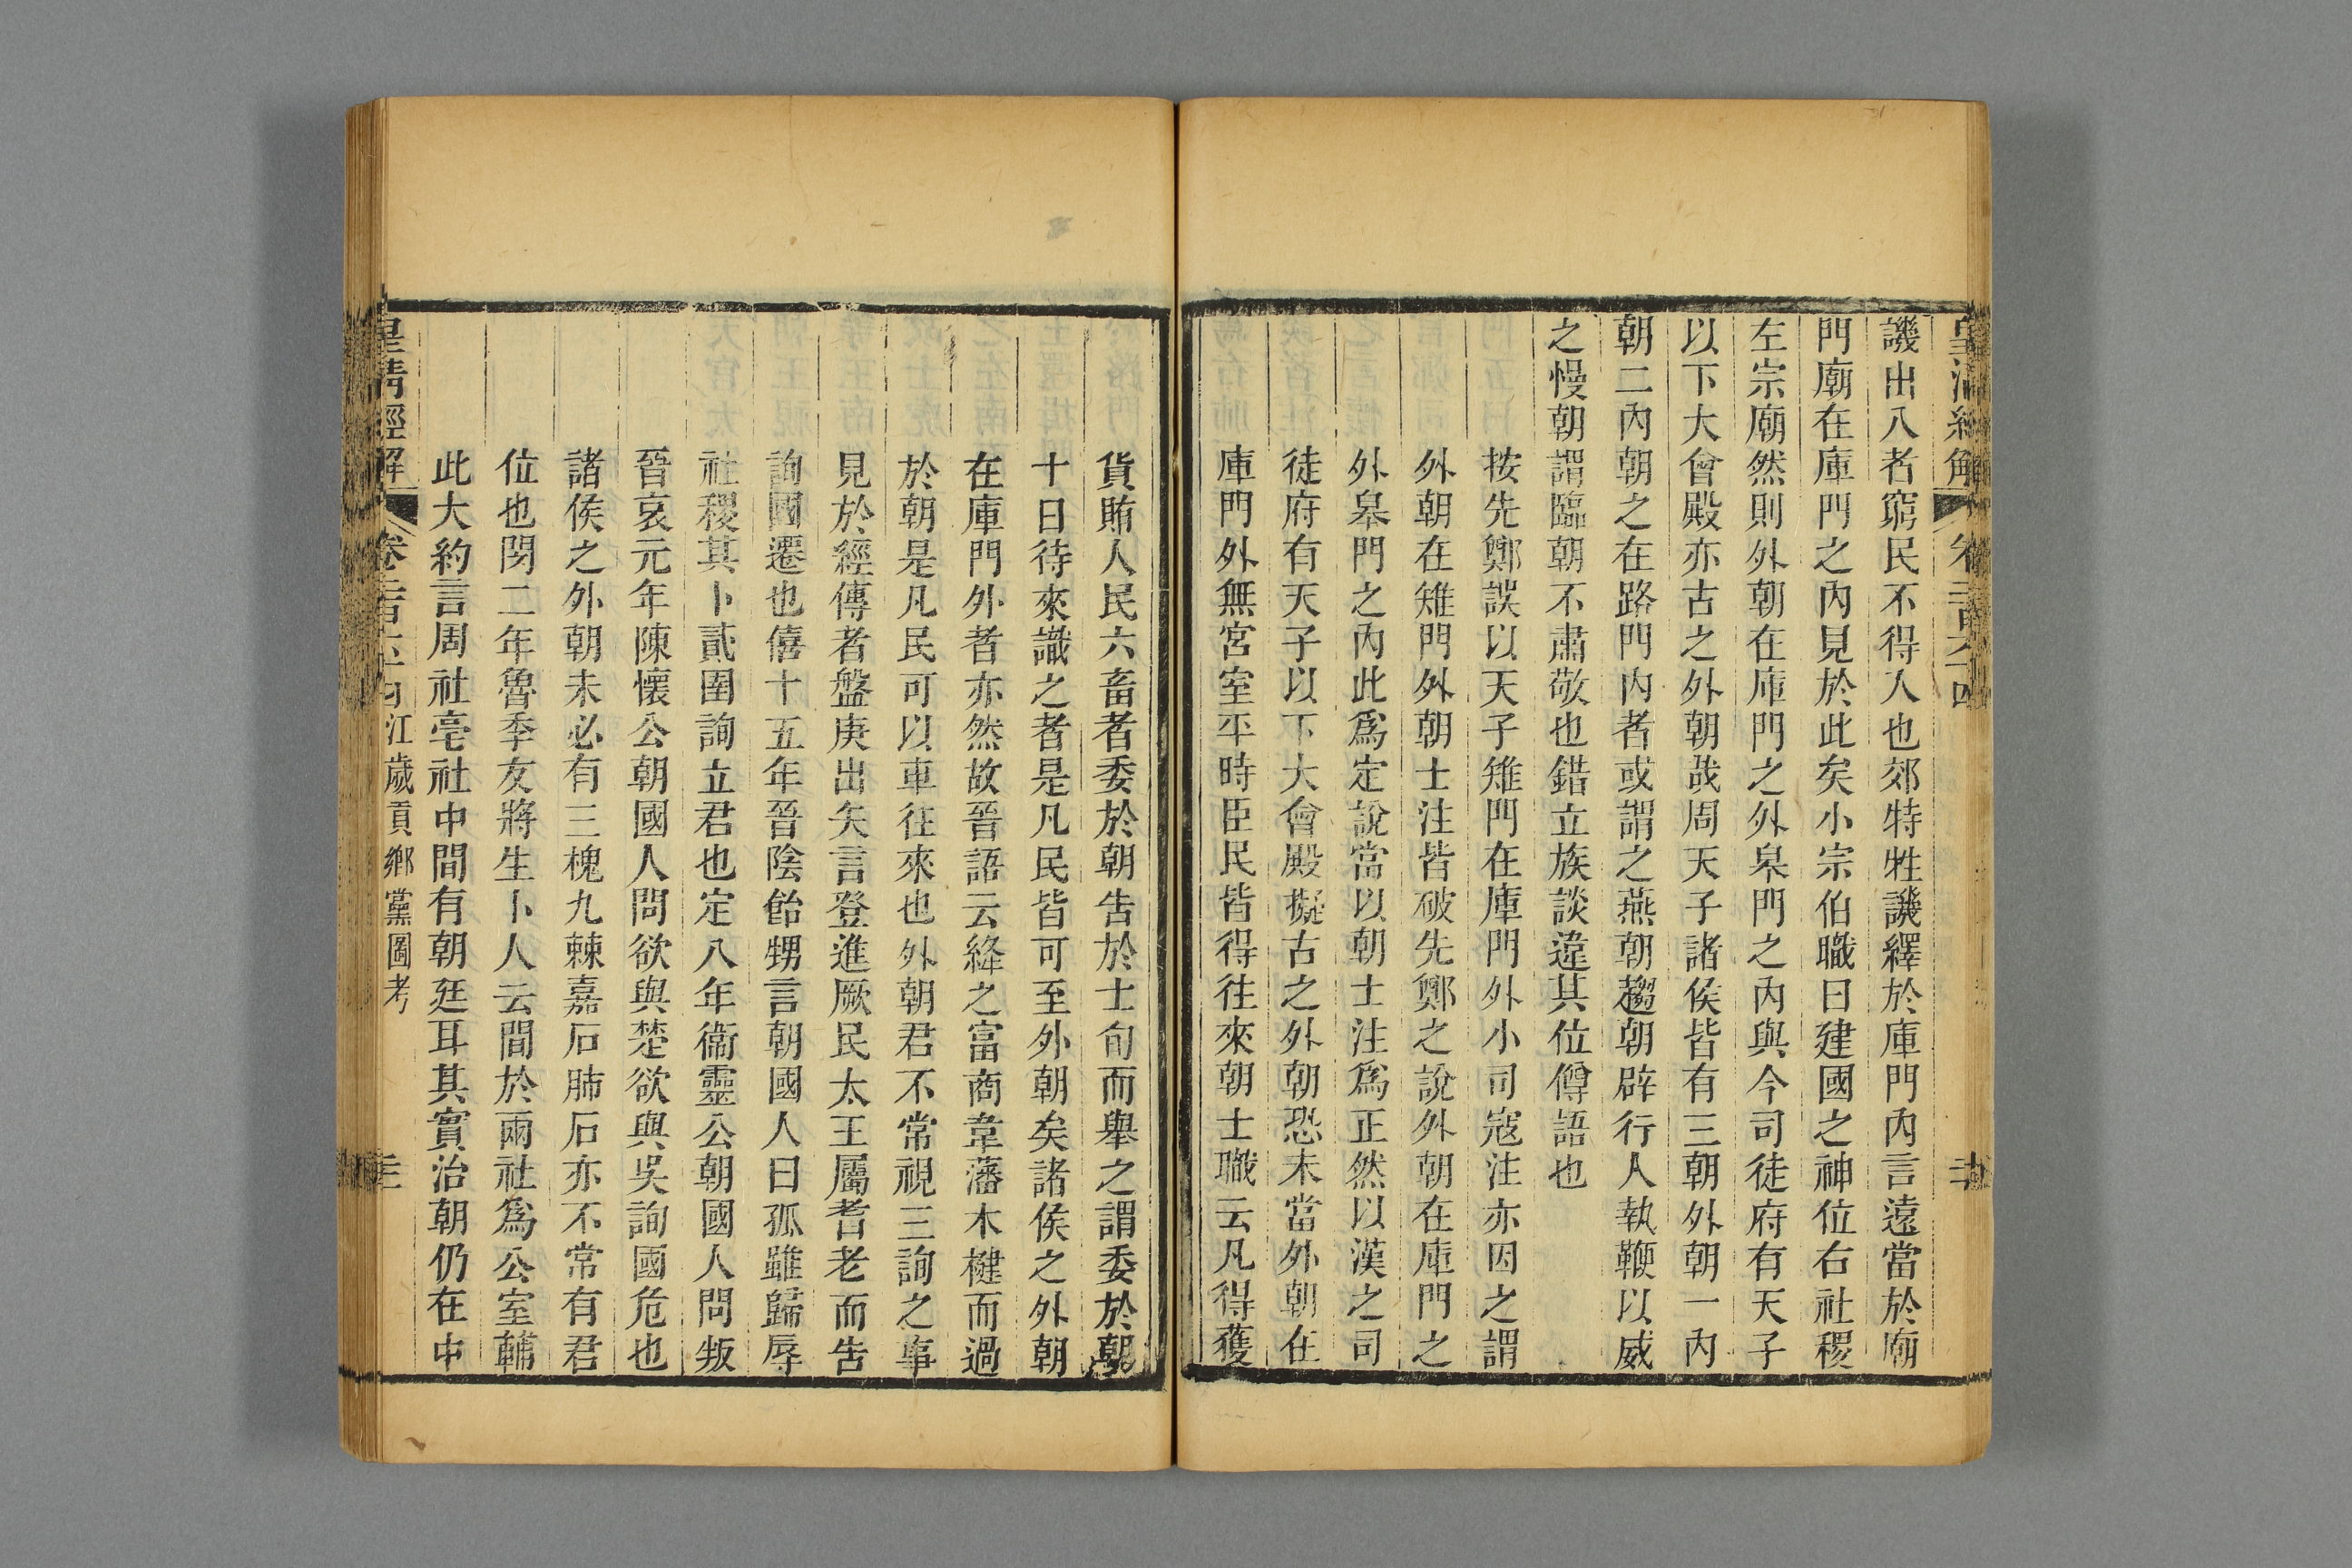 譏出入者窮民不得入也郊特牲譏繹於庫門內言遠當於廟
門廟在庫門之內見於此矣小宗伯職曰建國之神位右社稷
左宗廟然則外朝在庫門之外皋門之內與今司徒府有天子
以下大會殿亦古之外朝哉周天子諸侯皆有三朝外朝一內
朝二內朝之在路門內者或謂之燕朝趨朝辟行人執鞭以威
之慢朝謂臨朝不肅敬也錯立族談違其位僔語也
按先鄭誤以天子雉門在庫門外小司寇注亦因之謂
外朝在雉門外朝士注皆破先鄭之說外朝在庫門之
外皋門之內此爲定說當以朝士注爲正然以漢之司
徒府有天子以下大會殿擬古之外朝恐未當外朝在
庫門外無宮室平時臣民皆得往來朝士職云凡得獲
貨賄人民六畜者委於朝告於士旬而舉之謂委於朝
十日待來識之者是凡民皆可至外朝矣諸侯之外朝
在庫門外者亦然故晉語云絳之富商韋藩木楗而過
於朝是凡民可以車往來也外朝君不常視三詢之事
見於經傳者盤庚出矢言登進厥民太王屬耆老而告
詢國遷也僖十五年晉陰飴甥言朝國人曰孤雖歸辱
社稷其卜貳圉詢立君也定八年衞靈公朝國人問叛
晉哀元年陳懷公朝國人問欲與楚欲與吳詢國危也
諸侯之外朝未必有三槐九棘嘉石肺石亦不常有君
位也閔二年魯季友將生卜人云間於兩社爲公室輔
此大約言周社亳社中間有朝廷耳其實治朝仍在中
皇清經解 江歲貢鄉黨圖考